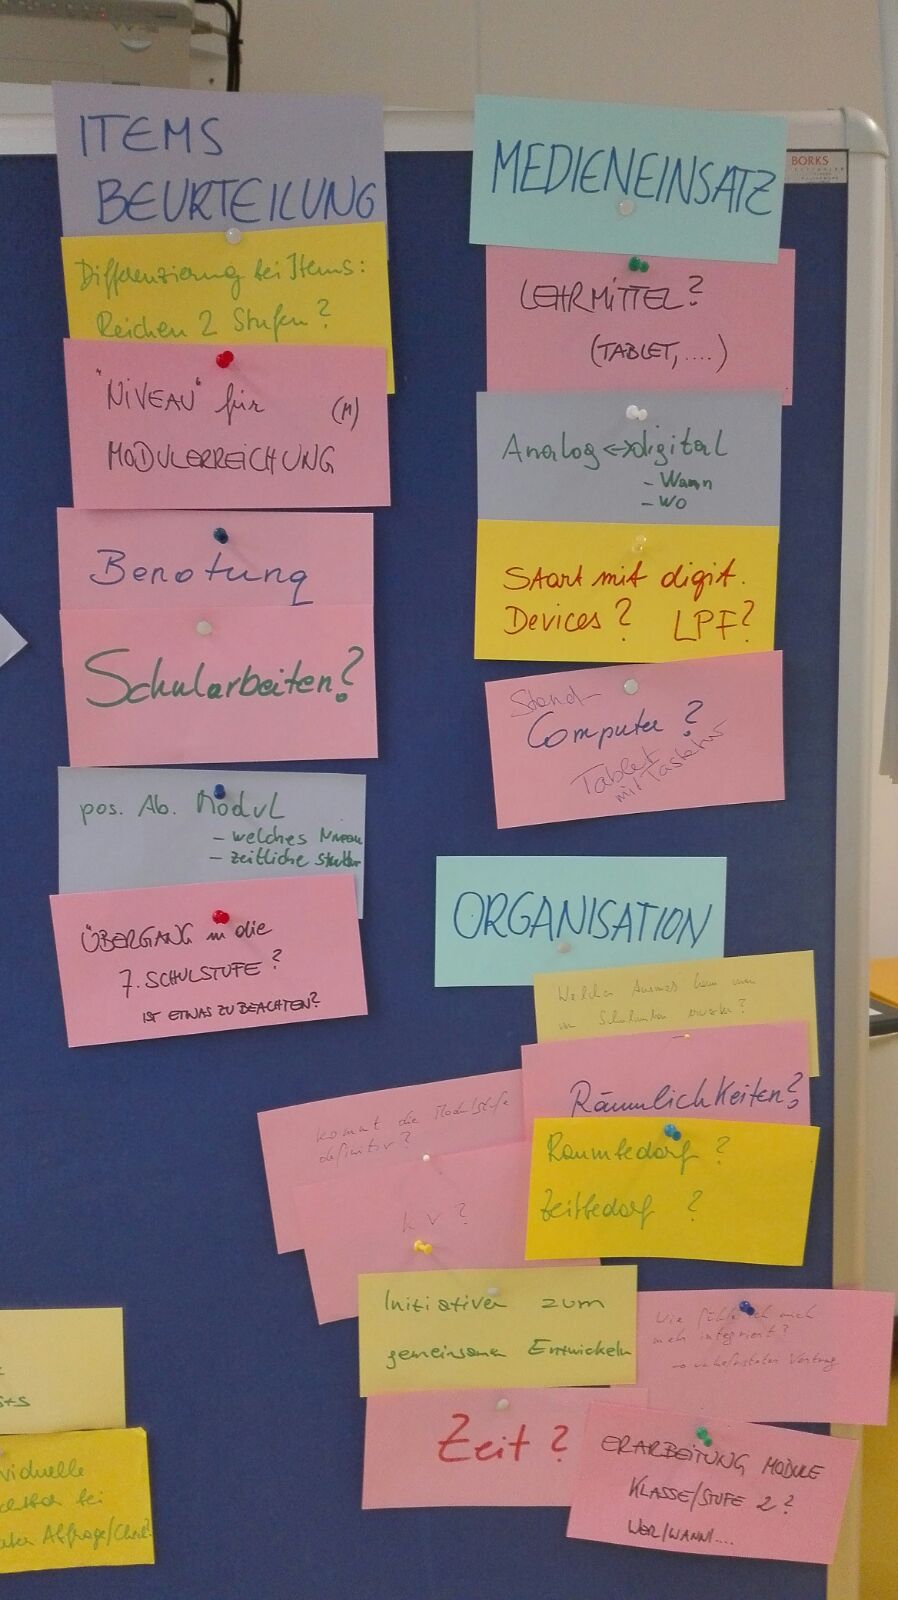 ITEMS
BEURTEILUNG
Differenzierung bei Items:
Reichen 2 Stufen?
"NIVEAU" für (M)
MODULERREICHUNG
Benotung
Schularbeiten?
pos. Ab. Modul
- welches Niveau
- zeitliche Struktur
ÜBERGANG in die
7. SCHULSTUFE?
IST ETWAS ZU BEACHTEN?
MEDIENEINSATZ
BORKS
LEHRMITTEL?
(TABLET,....)
Analog <-> digital
- Wann
- Wo
Start mit digit.
Devices? LPF?
Stand-
Computer?
Tablet
mit Tastatur
ORGANISATION
Welches Ausmass kann man
Räumlichkeiten?
Raumbedarf?
Zeitbedarf?
kommt die Modulstufe
definitiv?
KV?
Initiativen zum
gemeinsamen Entwickeln
Wie fühle ich mich
mehr integriert?
-> unbefristeter Vertrag
Zeit?
ERARBEITUNG MODULE
KLASSE/STUFE 2?
WER/WANN....
viduelle
bei
Abfrage/Check?